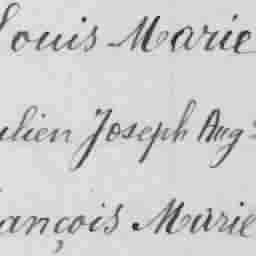 Louis Marie
ulien Joseph Aug
ançois Marie